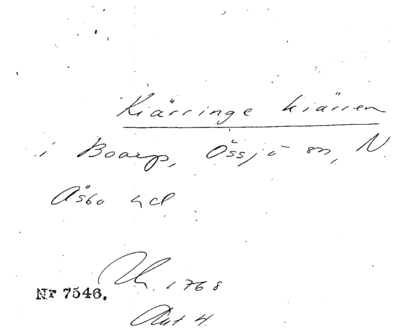 Kiärringe kiärren
i Boarp, Össjö sn, N
Åsbo hd
Uh. 1768
Nr 7546.
Akt 4.